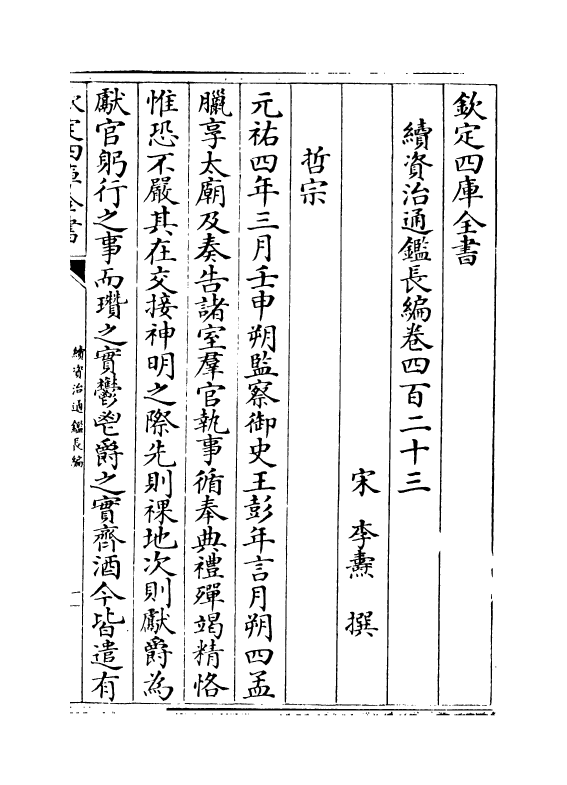 欽定四庫全書
續資治通鑑長編卷四百二十三
宋 李燾 撰
哲宗
元祐四年三月壬申朔監察御史王彭年言月朔四孟
臘享太廟及奏告諸室羣官執事循奉典禮殫竭精恪
惟恐不嚴其在交接神明之際先則祼地次則獻爵為
獻官躬行之事而瓚之實鬱鬯爵之實齊酒今皆遣有
欽定四庫全書
續資治通鑑長編
一